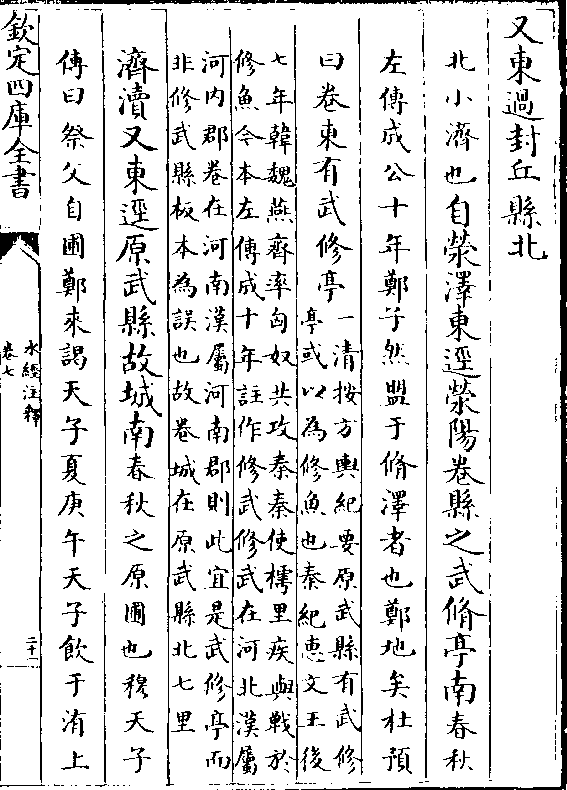 又東過封丘縣北
北小濟也自滎澤東逕滎陽卷縣之武脩亭南春秋
左傳成公十年鄭子然盟于脩澤者也鄭地矣杜預
曰卷東有武修亭
一清按方輿紀要原武縣有武修
亭或以為修魚也秦紀惠文王後
七年韓魏燕齊率匈奴共攻秦秦使樗里疾與戰於
修魚今本左傳成十年註作修武修武在河北漢屬
河内郡卷在河南漢屬河南郡則此宜是武修亭而
非修武縣板本為誤也故卷城在原武縣北七里
濟瀆又東逕原武縣故城南春秋之原圃也穆天子
傳曰祭父自圃鄭來謁天子夏庚午天子飲于洧上
欽定四庫全書
水經注釋
卷七
二十一